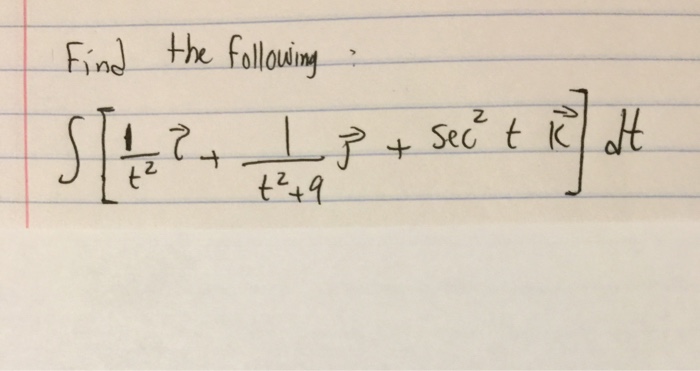 Find the following :
∫ [ 1/t² i⃗ + 1/(t²+9) j⃗ + sec² t k⃗ ] dt